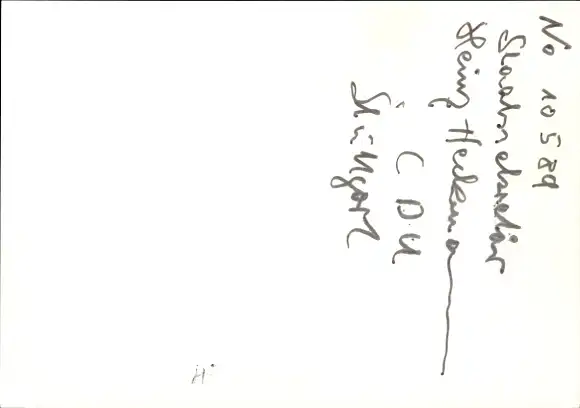 No 10589
Staatssekretär
Heinz Heckmann
CDU
Stuttgart
H